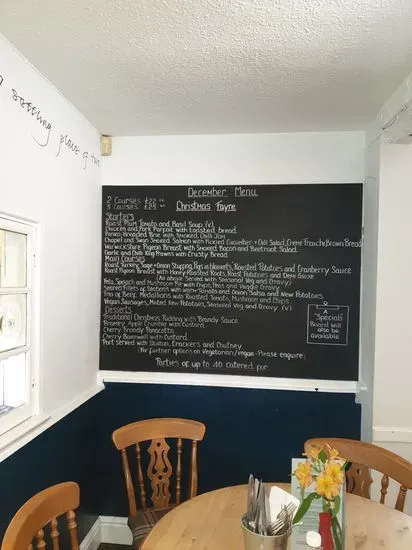 a settling place of
December Menu
Christmas Fayre
2 Courses £22.
3 Courses £25.
Starters
Roast Plum Tomato and Basil Soup (v)
Chicken and Pork Parfait with toasted bread
Panko Breaded Brie with Smoked Chilli Jam
Chapel and Swan Smoked Salmon with Pickled Cucumber + Dill Salad, Creme Fraiche, Brown Bread
Warwickshire Pigeon Breast with Smoked Bacon and Beetroot Salad
Garlic and Chilli King Prawns with Crusty Bread
Main Courses
Roast Turkey, Sage + Onion Stuffing, Pigs in Blankets, Roasted Potatoes and Cranberry Sauce
Roast Pigeon Breast with Honey Roasted Roots, Roast Potatoes and Demi Glaze
(All above Served with Seasonal Veg and Gravy)
Feta, Spinach and Mushroom Pie with Chips, Peas and Veggie Gravy
Seared Fillets of Seabass with Warm Tomato and Onion Salsa and New Potatoes
Trio of Beef Medallions with Roasted Tomato, Mushroom and Chips
Vegan Sausages, Mustard New Potatoes, Seasonal Veg and Gravy (v)
Desserts
Traditional Christmas Pudding with Brandy Sauce
Bramley Apple Crumble with Custard
Cherry Brandy Pannacotta
Cherry Bakewell with Custard
Port served with Stilton, Crackers and Chutney
(For further options on Vegetarian/vegan - Please enquire)
Parties of up to 40 catered for
A
"Specials"
Board will
also be
available